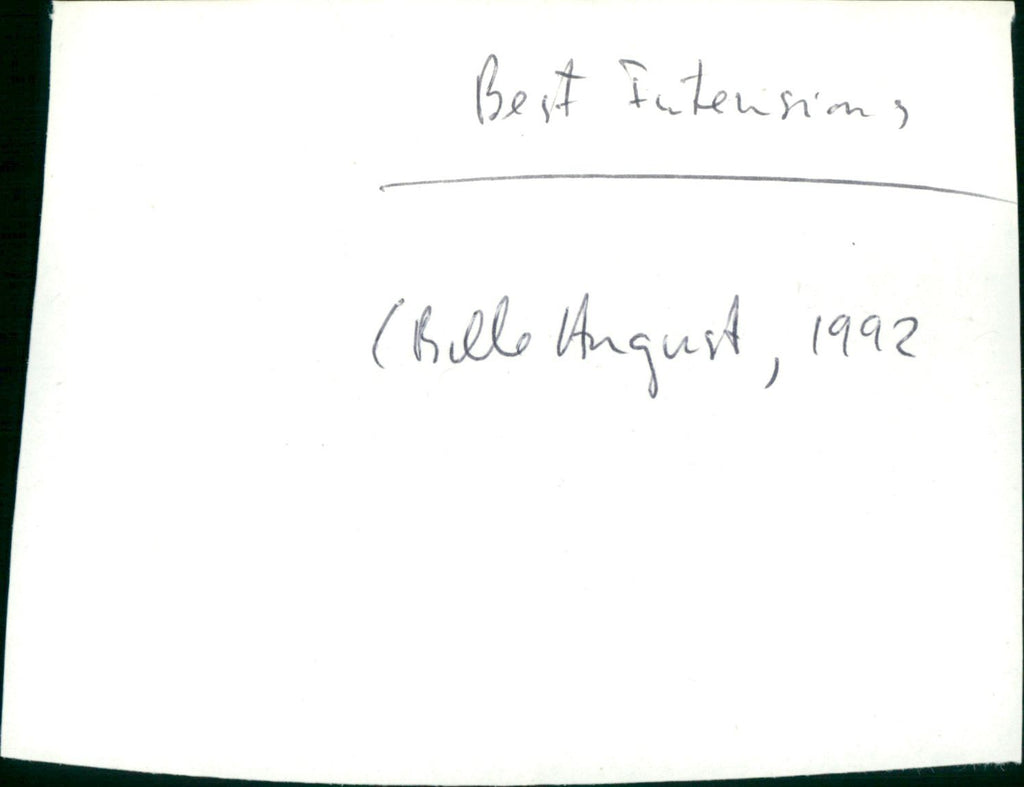 Best Intensions
(Bille August, 1992